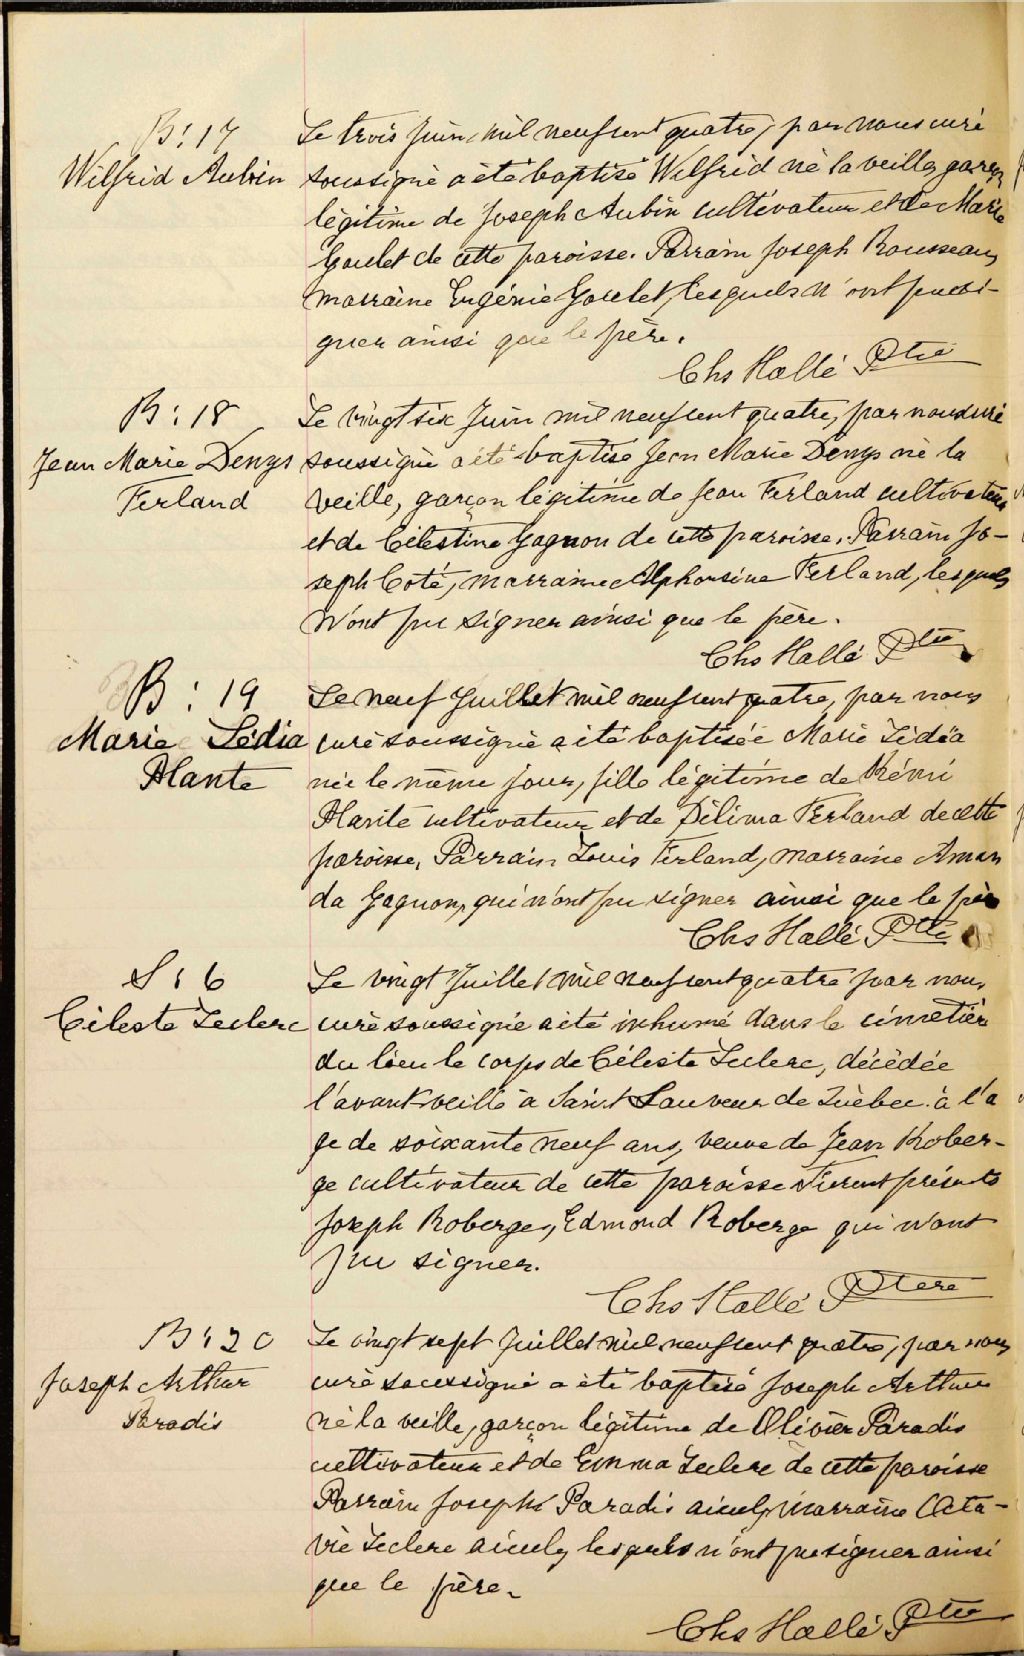 B: 17
Wilfrid Aubin
Le trois Juin, mil neuf cent quatre, par nous curé
soussigné a été baptisé Wilfrid né la veille, garçon
légitime de Joseph Aubin cultivateur et de Marie
Goulet de cette paroisse. Parrain Joseph Rousseau,
marraine Eugénie Goulet, lesquels n'ont pu si-
gner ainsi que le père.
Chs Hallé Ptre
B: 18
Jean Marie Denys
Ferland
Le vingt six Juin mil neuf cent quatre, par nous curé
soussigné a été baptisé Jean Marie Denys né la
veille, garçon légitime de Jean Ferland cultivateur
et de Célestine Gagnon de cette paroisse. Parrain Jo-
seph Coté, marraine Alphonsine Ferland, lesquels
n'ont pu signer ainsi que le père.
Chs Hallé Ptre
B: 19
Marie Lédia
Plante
Le neuf Juillet mil neuf cent quatre, par nous
curé soussigné a été baptisée Marie Lédia
née le même jour, fille légitime de Rémi
Plante cultivateur et de Délima Ferland de cette
paroisse, Parrain Louis Ferland, marraine Aman
da Gagnon, qui n'ont pu signer ainsi que le père
Chs Hallé Ptre
S: 6
Céleste Leclerc
Le vingt Juillet mil neuf cent quatre par nous
curé soussigné a été inhumé dans le cimetière
du lieu le corps de Céleste Leclerc, décédée
l'avant veille à Saint Sauveur de Québec à l'a
ge de soixante neuf ans, veuve de Jean Rober-
ge cultivateur de cette paroisse Furent présents
Joseph Roberge, Edmond Roberge qui n'ont
pu signer.
Chs Hallé Ptre
B: 20
Joseph Arthur
Paradis
Le vingt sept Juillet mil neuf cent quatre, par nous
curé soussigné a été baptisé Joseph Arthur
né la veille, garçon légitime de Olivier Paradis
cultivateur et de Emma Leclerc de cette paroisse
Parrain Joseph Paradis aieul, marraine Octa-
vie Leclerc aieule, lesquels n'ont pu signer ainsi
que le père.
Chs Hallé Ptre